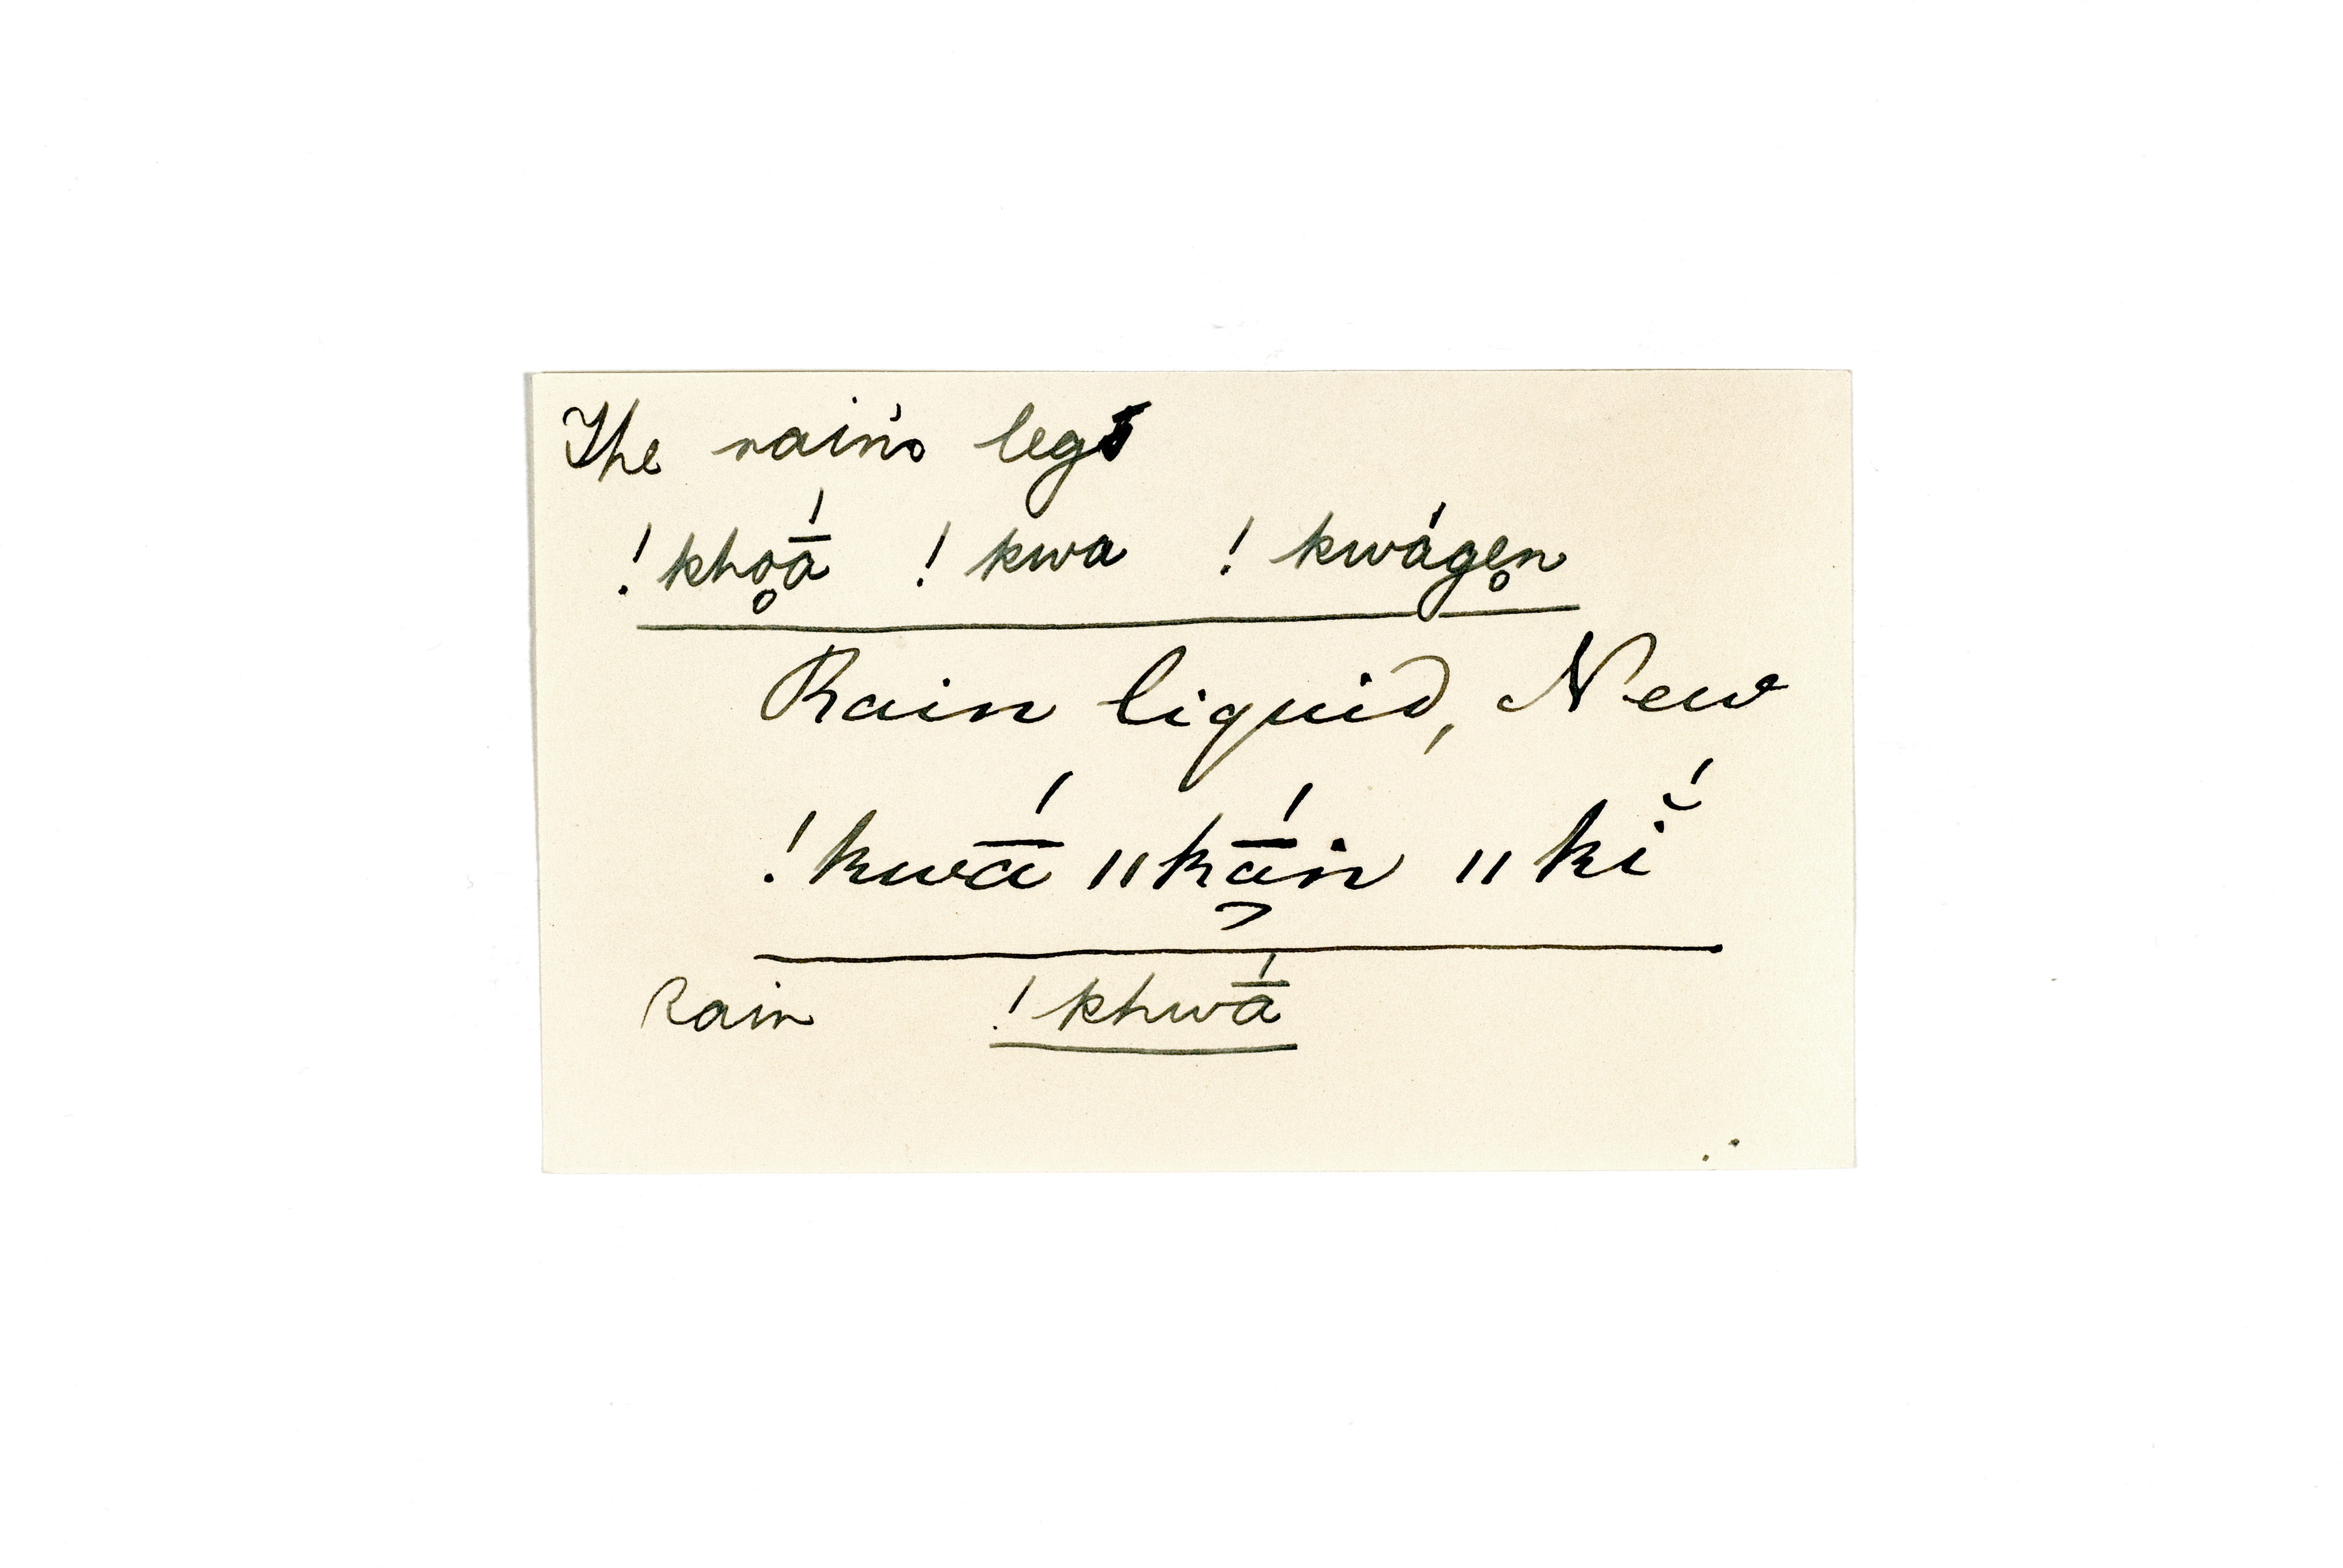 The rain's legs
!kho̥ā́ !kwa !kwáge̥n
Rain liquid, New
!kwā́ ǁkā̡́n ǁkĭ́
Rain !khwā́